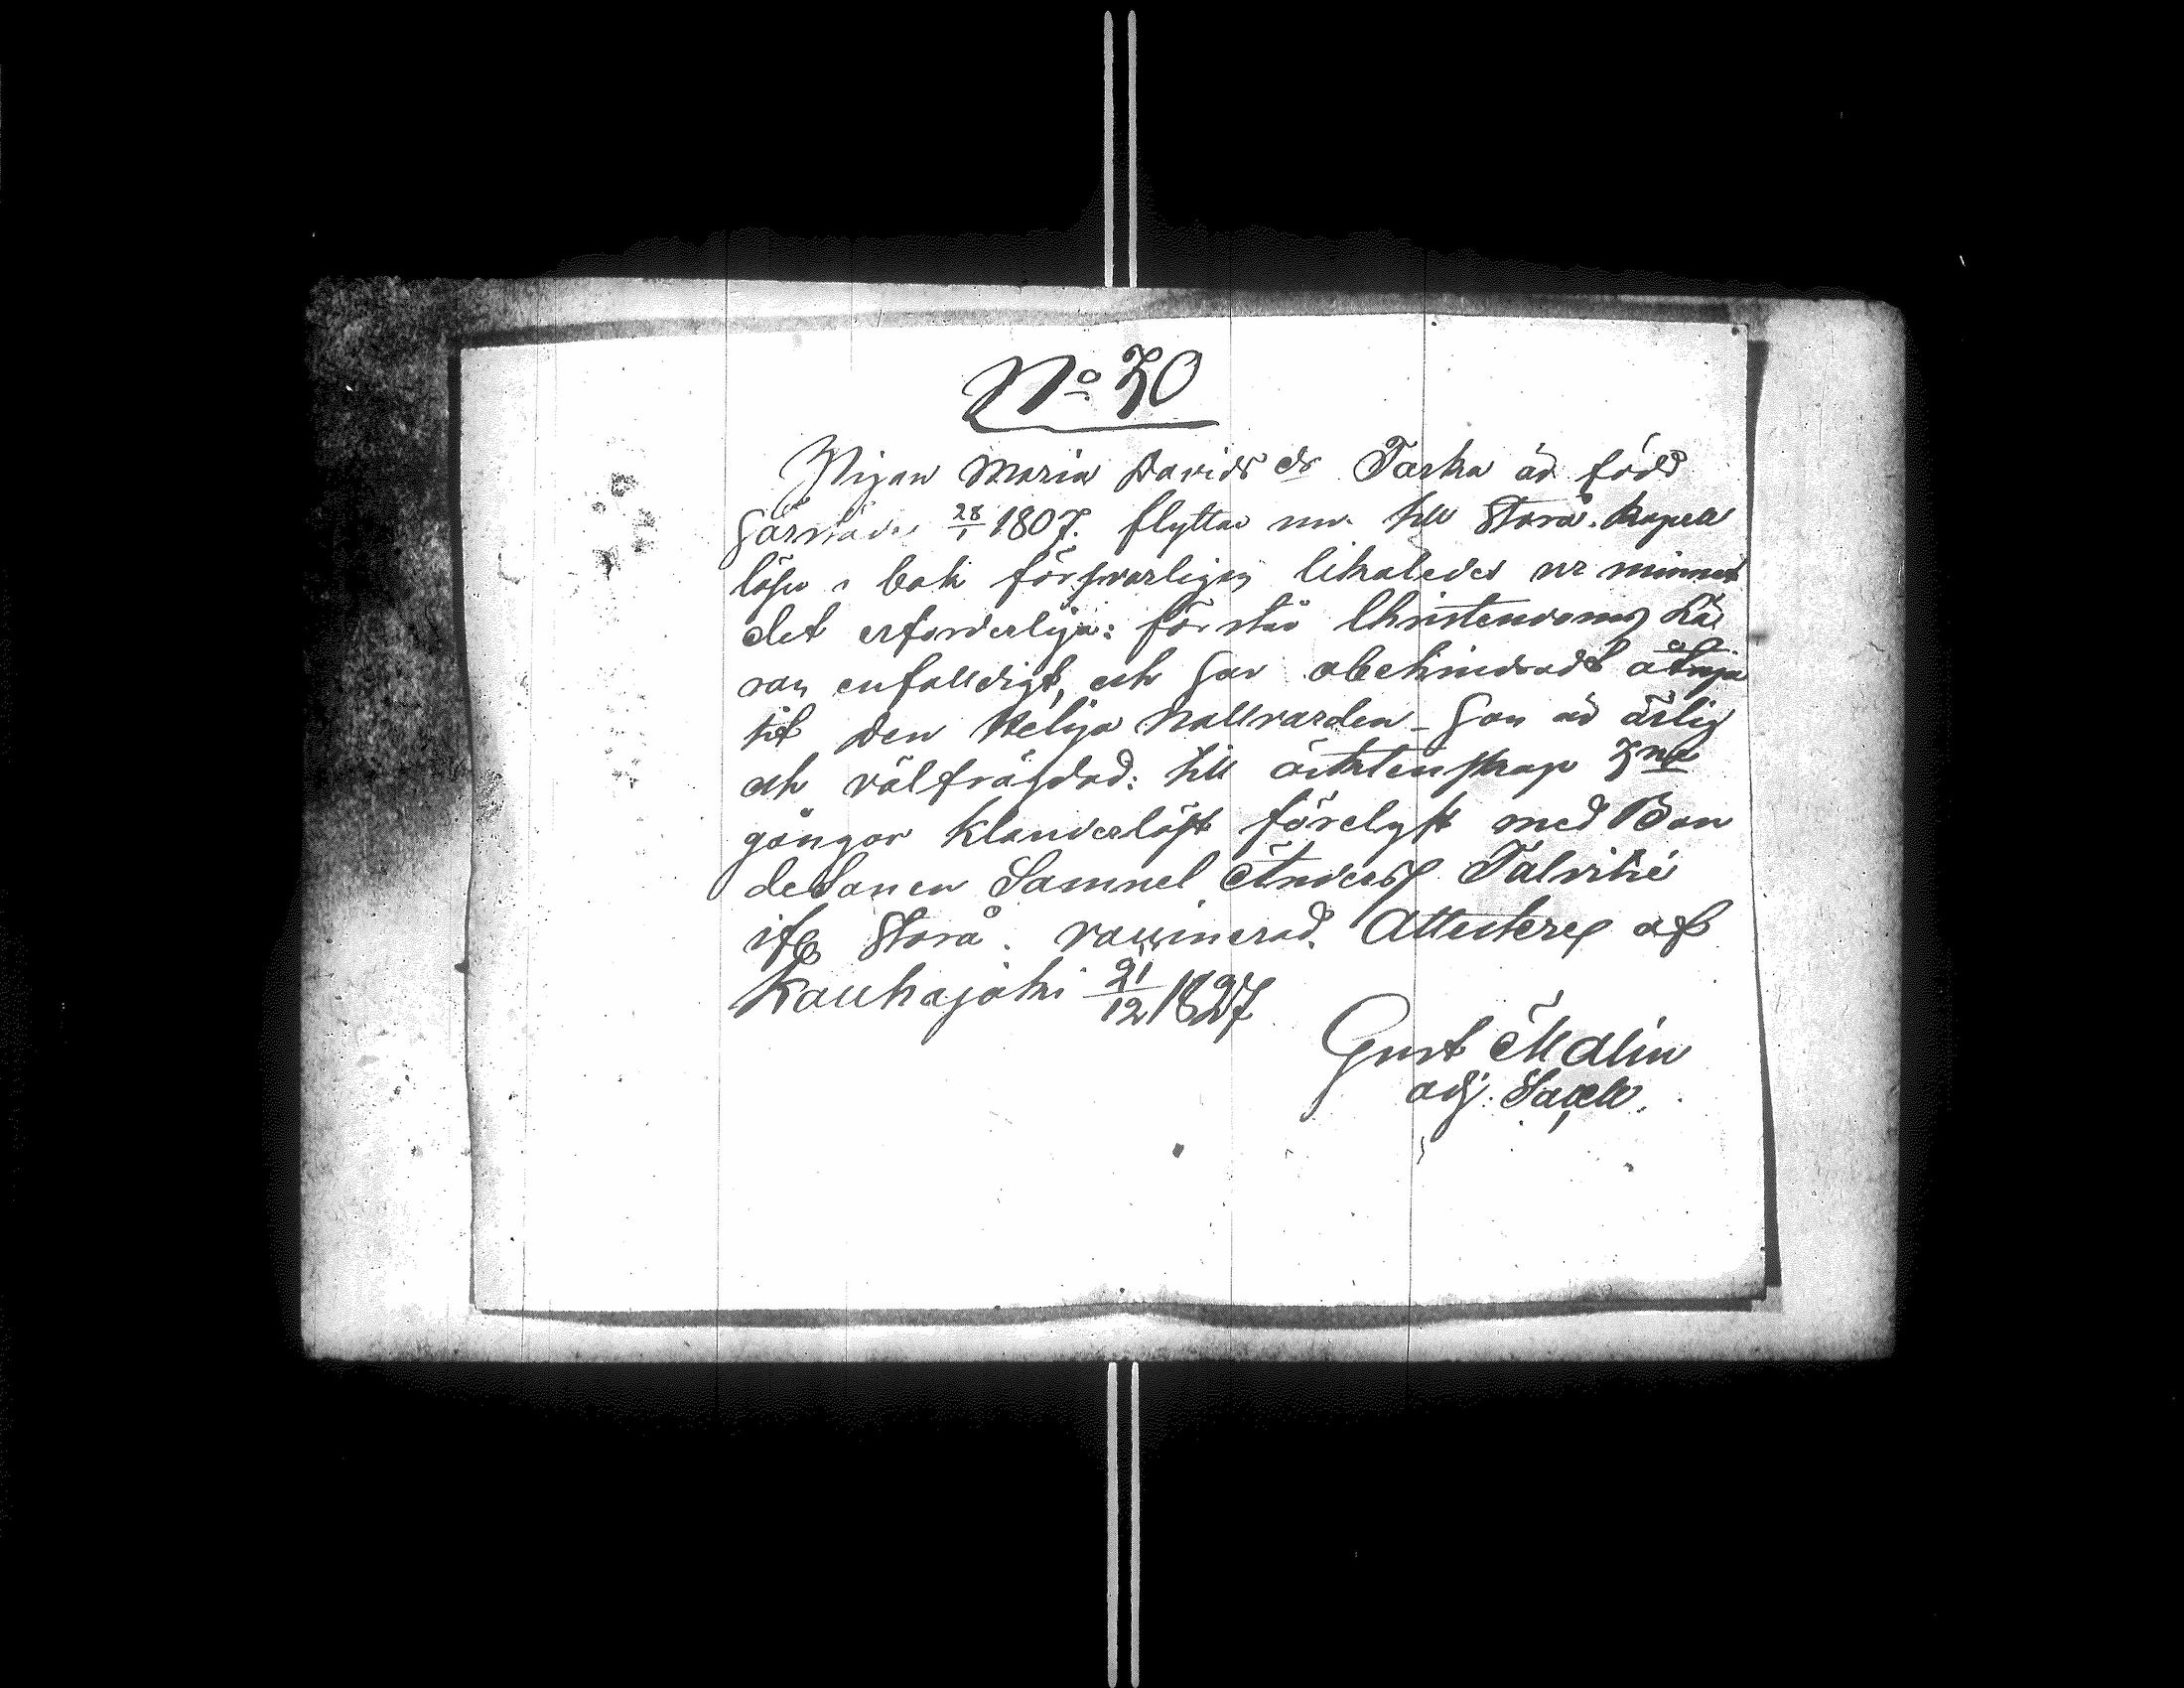 No 30
Pigan Maria Davids dr Tarka är född
härstädes 28/1 1807. flyttar nu till Storå. kapell
läser i bok försvarligen likaledes ur minnet
det erforderliga: förstår Christendoms Lä
ran enfalldigt, och har obehindradt åtnju
tit Den Heliga Nattvarden - hon är ärlig
och välfrägdad: till äcktenskap 3ne
gångor klanderlöst förelyst med Bon
deSonen Samuel Anderss. Talvitie
ifrå Storå. vaccinerad. Attesteres af
Kauhajoki 21/12 1827
Gust Malin
adj: Sacell.